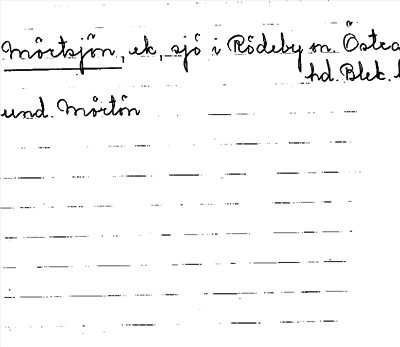 Mörtsjön, ek, sjö i Rödeby sn. Östra
hd. Blek.
und. Mörtön